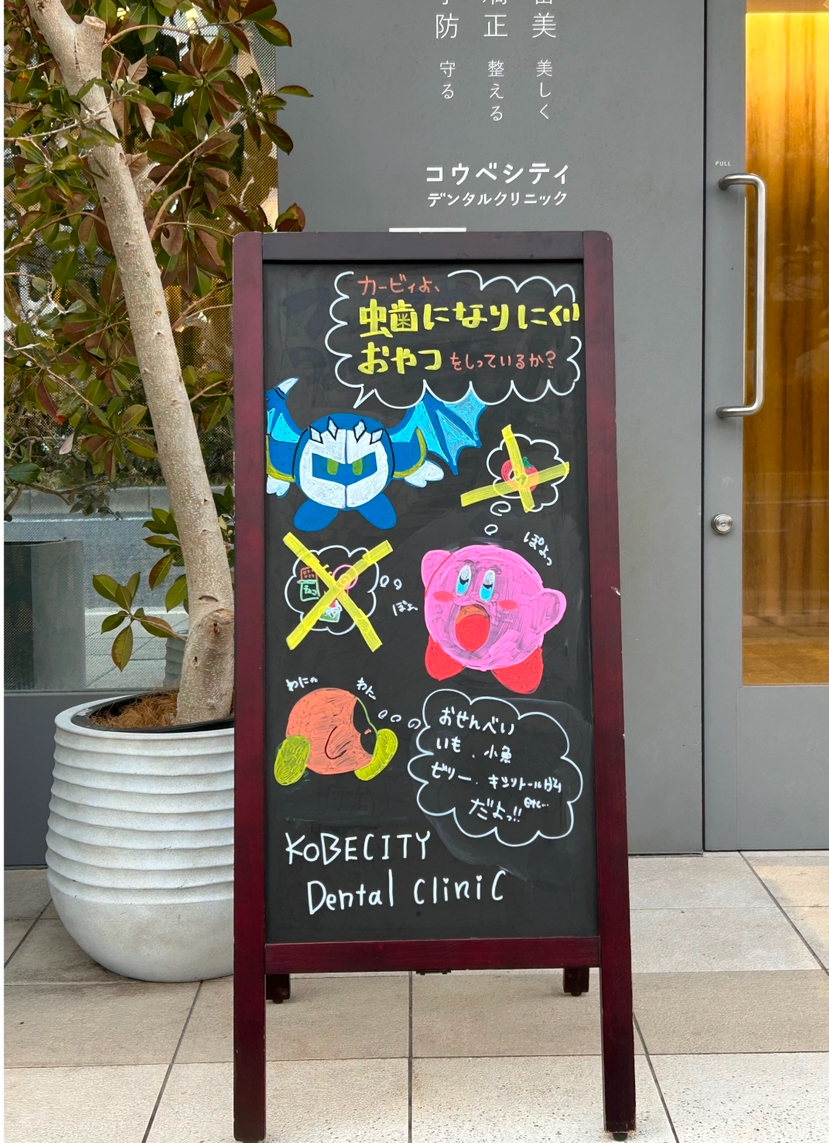 防 正 美
守る 整える 美しく
コウベシティ
デンタルクリニック
PULL
カービィよ、
虫歯になりにくい
おやつをしっているか?
ぽよっ
チョコ
ぽよ
わにゃ
わにゃ
おせんべい
いも、小魚
ゼリー、キシリトールガム
etc...
だよっ!!
KOBECITY
Dental Clinic